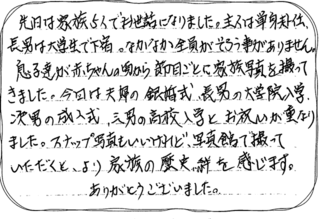 先日は家族5人でお世話になりました。主人は単身赴任、
長男は大学生で下宿。なかなか全員がそろう事がありません。
息子達が赤ちゃんの頃から節目ごとに家族写真を撮って
きました。今回は夫婦の銀婚式、長男の大学院入学、
次男の成人式、三男の高校入学とお祝いが重なり
ました。スナップ写真もいいけれど、写真館で撮って
いただくと、より家族の歴史、絆を感じます。
ありがとうございました。